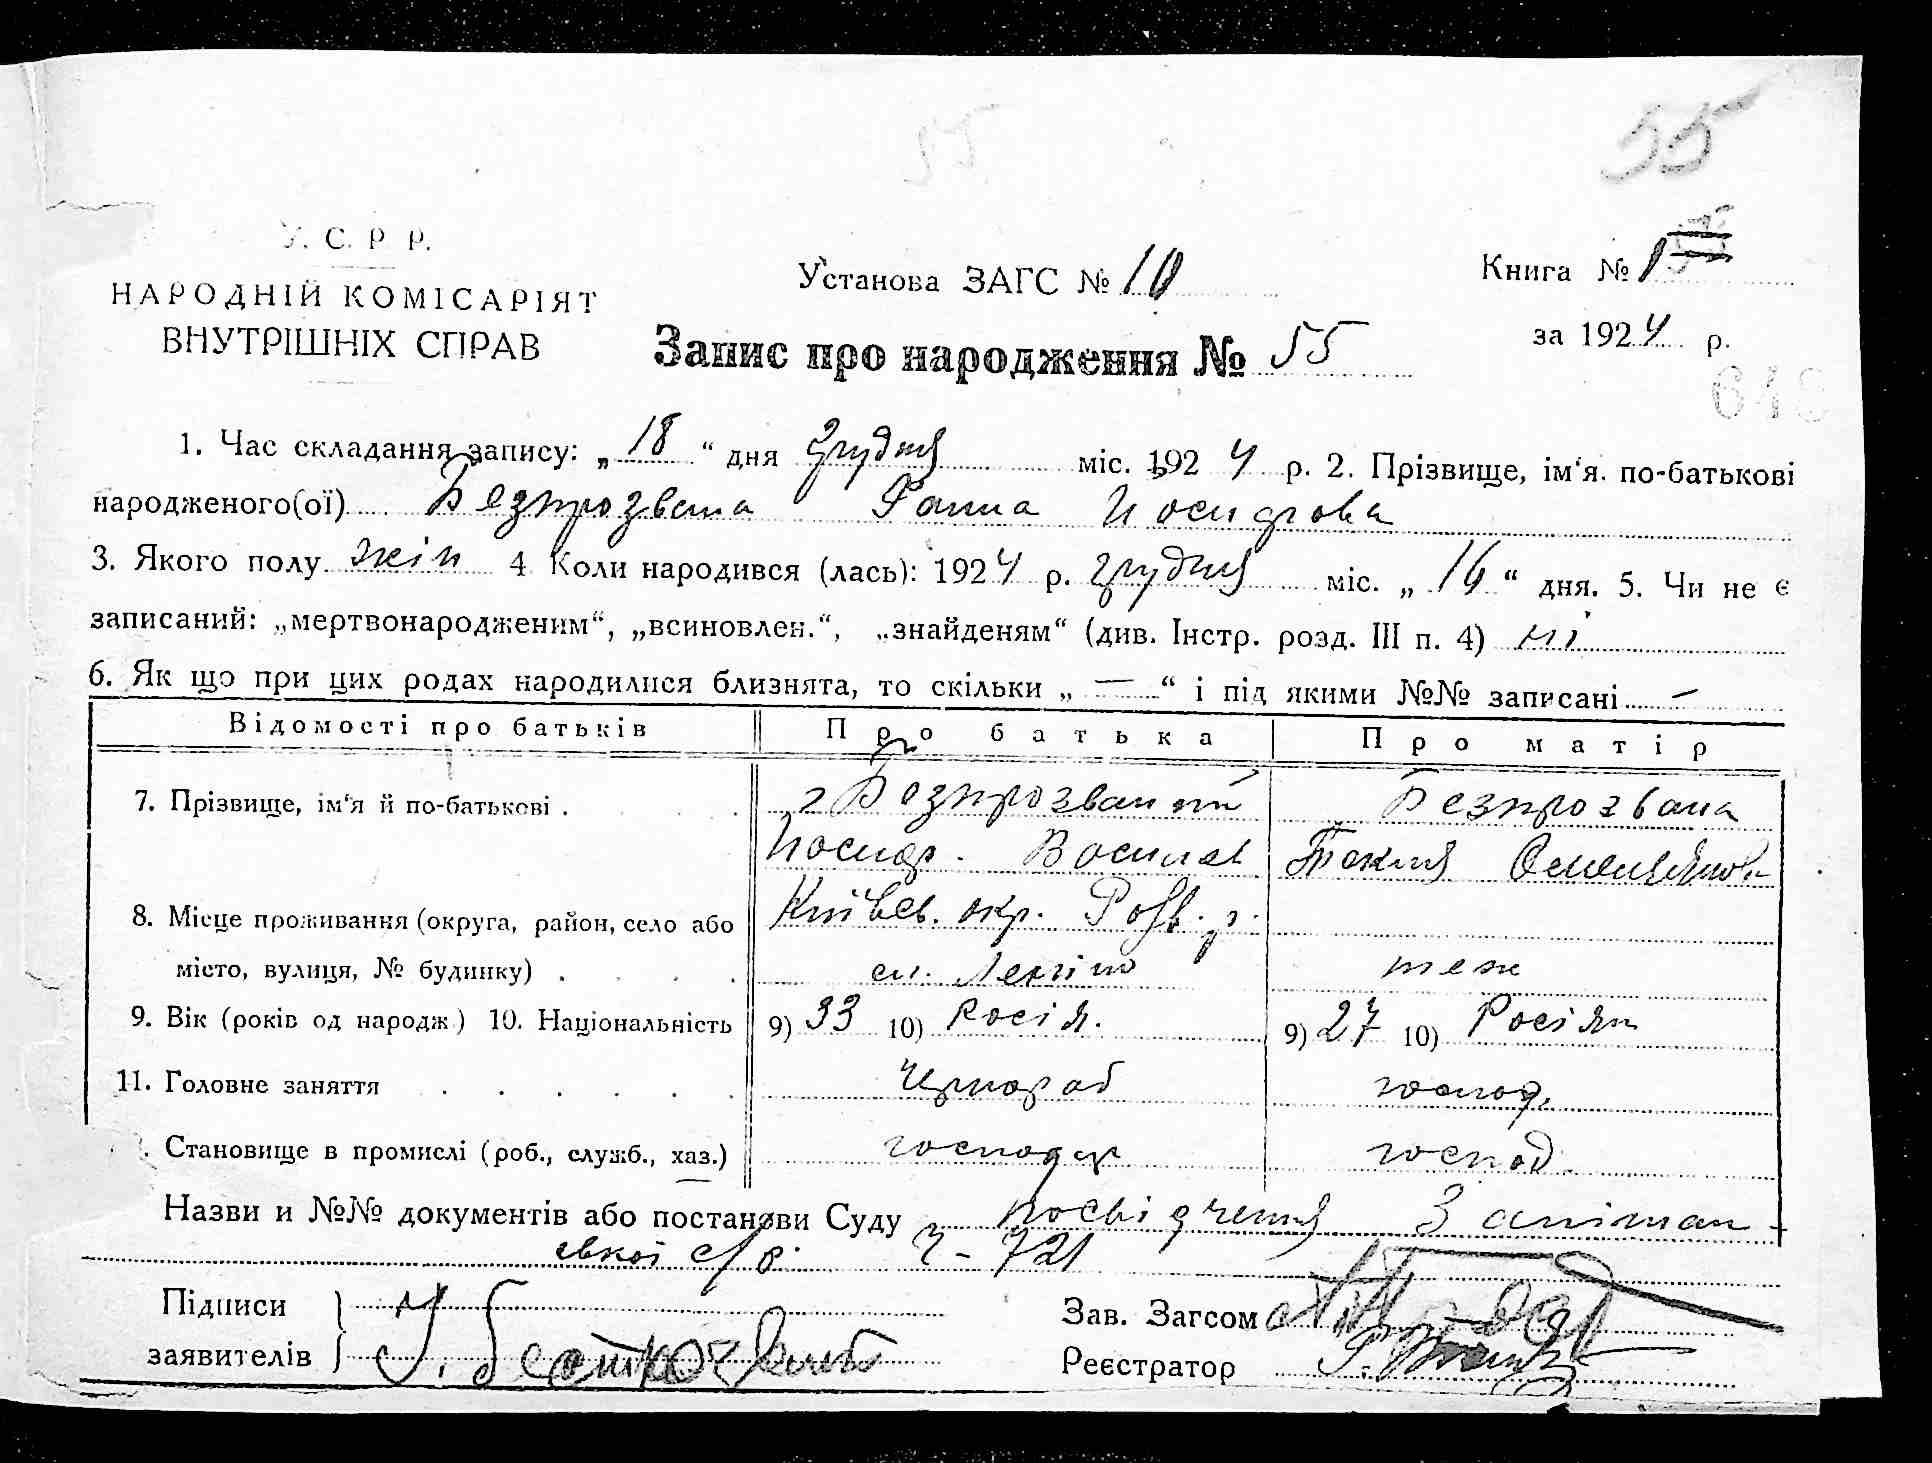 55
55
У. С. Р Р.
НАРОДНІЙ КОМІСАРІЯТ
ВНУТРІШНІХ СПРАВ
Установа ЗАГС № 10
Книга № 1
Запис про народження № 55
за 1924 р.
648
1. Час складання запису: „18“ дня Грудня міс. 1924 р. 2. Прізвище, ім‘я. по-батькові
народженого(ої) Безпрозвана Ганна Йосипова
3. Якого полу жін 4 Коли народився (лась): 1924 р. грудня міс. „16“ дня. 5. Чи не є
записаний: „мертвонародженим“, „всиновлен.“, „знайденям“ (див. Інстр. розд. III п. 4) ні
6. Як що при цих родах народилися близнята, то скільки „ — “ і під якими №№ записані —
Відомості про батьків Про батька Про матір
7. Прізвище, ім‘я й по-батькові . Безпрозваний Безпрозвана
Йосип. Васильов Текля
8. Місце проживання (округа, район, село або Київськ. окр. р.
місто, вулиця, № будинку) . теж
9. Вік (років од народж.) 10. Національність 9) 33 10) Росія. 9) 27 10) Росіян
11. Головне заняття Чорнороб господ.
. Становище в промислі (роб., служб., хаз.) господар господ.
Назви и №№ документів або постанови Суду посвідчення
ської с/р. ч - 721
Підписи
заявителів
Зав. Загсом
Реєстратор